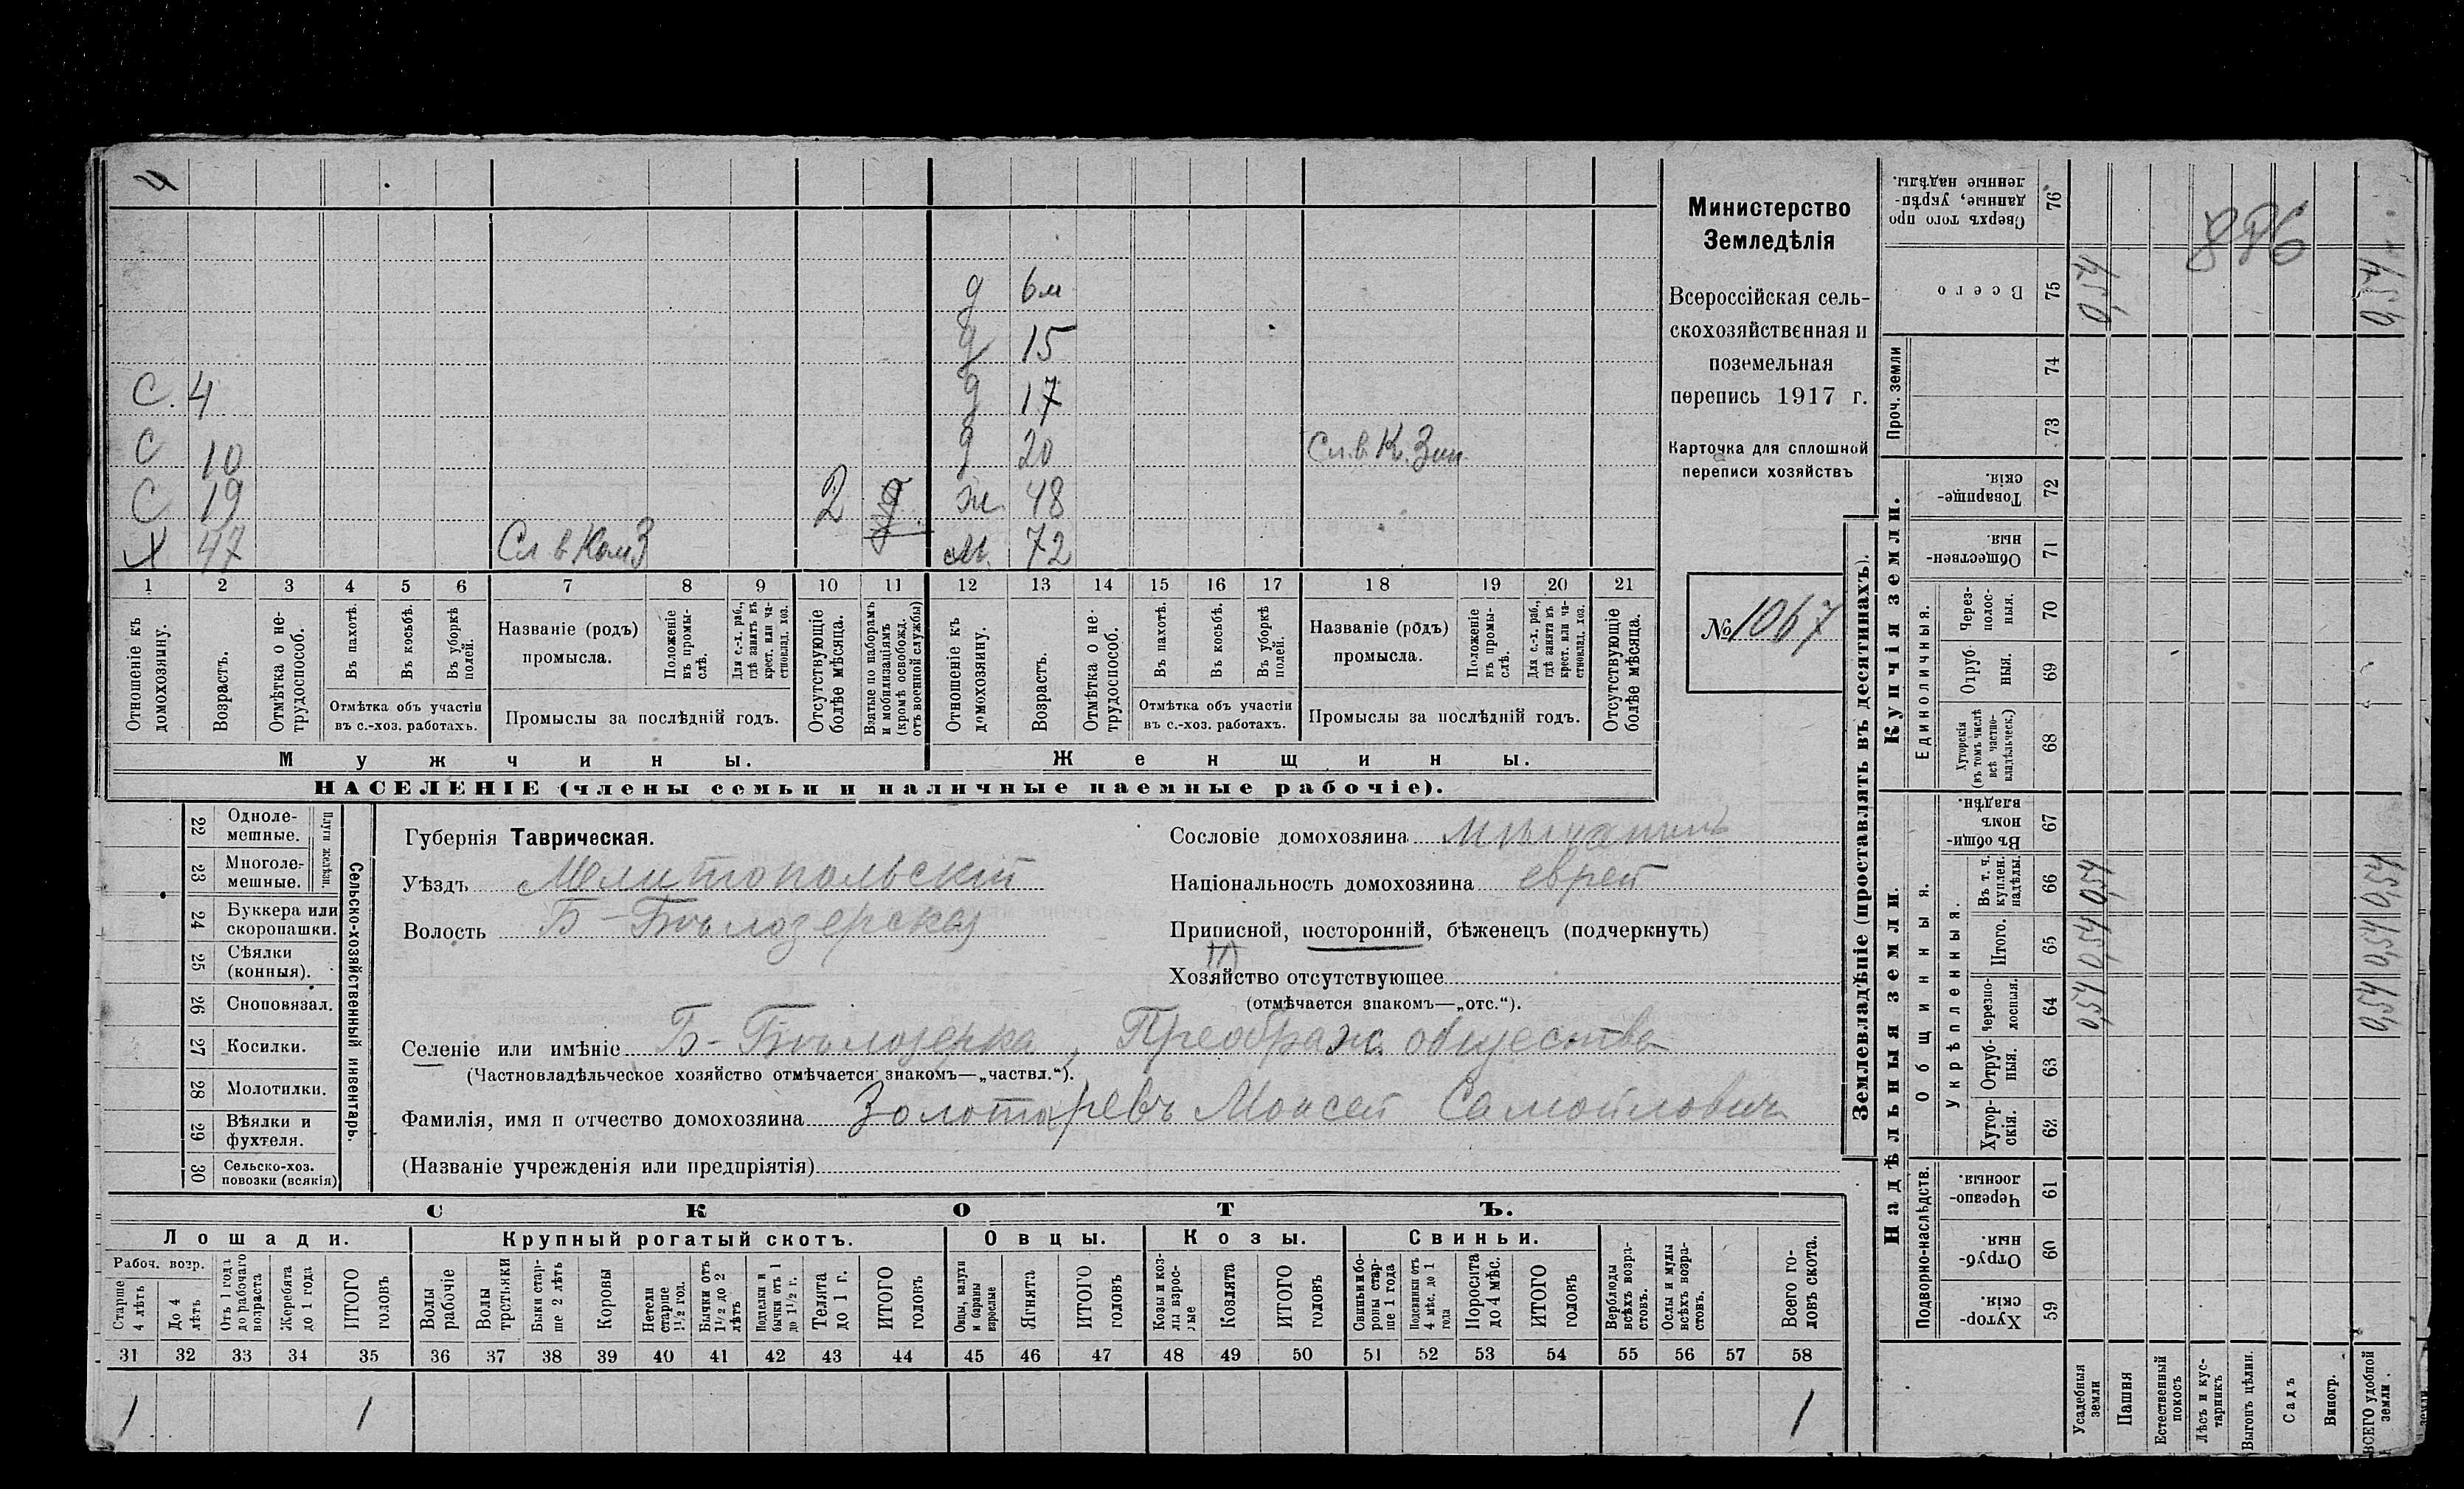 4
д 6м
д 15
С. 4 д 17
С 10 д 20 Сл. в К.
С 19 2 ж. 48
Х 47 Сл в Ком З м. 72
1 2 3 4 5 6 7 8 9 10 11 12 13 14 15 16 17 18 19 20 21
Отношеніе къ домохозяину.
Возрастъ.
Отмѣтка о не-
трудоспособ.
Въ пахотѣ.
Въ косьбѣ.
Въ уборкѣ полей.
Отмѣтка объ участіи
въ с.-хоз. работахъ.
Названіе (родъ)
промысла.
Положеніе
въ промы-
слѣ.
Для с.-х. раб.,
гдѣ занятъ въ
крест. или ча-
стновлад. хоз.
Промыслы за послѣдній годъ.
Отсутствующіе
болѣе мѣсяца.
Взятые по наборамъ
и мобилизаціямъ
(кромѣ освобожд.
отъ военной службы)
Отношеніе къ
домохозяину.
Возрастъ.
Отмѣтка о не-
трудоспособ.
Въ пахотѣ.
Въ косьбѣ.
Въ уборкѣ
полей.
Отмѣтка объ участіи
въ с.-хоз. работахъ.
Названіе (родъ)
промысла.
Положеніе
въ промы-
слѣ.
Для с.-х. раб.,
гдѣ занята въ
крест. или ча-
стновлад. хоз.
Промыслы за послѣдній годъ.
Отсутствующіе
болѣе мѣсяца.
Мужчины.
Женщины.
НАСЕЛЕНІЕ (члены семьи и наличные наемные рабочіе).
Министерство
Земледѣлія
Всероссійская сель-
скохозяйственная и
поземельная
перепись 1917 г.
Карточка для сплошной
переписи хозяйствъ
№ 1067
22 Одноле-
мешные.
23 Многоле-
мешные.
Плуги желѣзн.
24 Буккера или
скоропашки.
25 Сѣялки
(конныя).
26 Сноповязал.
27 Косилки.
28 Молотилки.
29 Вѣялки и
фухтеля.
30 Сельско-хоз.
повозки (всякія)
Сельско-хозяйственный инвентарь.
Губернія Таврическая.
Уѣздъ Мелитопольскій
Волость Б-Бѣлозерская
Сословіе домохозяина мѣщанинъ
Національность домохозяина еврей
Приписной, посторонній, бѣженецъ (подчеркнуть)
Хозяйство отсутствующее
(отмѣчается знакомъ—„отс.“).
Селеніе или имѣніе Б-Бѣлозерка, Преображ. общества
(Частновладѣльческое хозяйство отмѣчается знакомъ—„частвл.“).
Фамилія, имя и отчество домохозяина Золотаревъ Моисей Самойловичъ
(Названіе учрежденія или предпріятія)
СКОТЪ.
Лошади. Крупный рогатый скотъ. Овцы. Козы. Свиньи.
Рабоч. возр.
Старше
4 лѣтъ
До 4
лѣтъ
Отъ 1 года
до рабочаго
возраста
Жеребята
до 1 года
ИТОГО
головъ
Волы
рабочіе
Волы
третьяки
Быки стар-
ше 2 лѣтъ
Коровы
Нетели
старше
1½ год.
Бычки отъ
1½ до 2
лѣтъ
Подтелки и
бычки отъ 1
до 1½ г.
Телята
до 1 г.
ИТОГО
головъ
Овцы, валухи
и бараны
взрослые
Ягнята
ИТОГО
головъ
Козы и коз-
лы взрос-
лые
Козлята
ИТОГО
головъ
Свиньи и бо-
ровы стар-
ше 1 года
Подсвинки отъ
4 мѣс. до 1
года
Поросята
до 4 мѣс.
ИТОГО
головъ
Верблюды
всѣхъ возра-
стовъ.
Ослы и мулы
всѣхъ возра-
стовъ.
Всего го-
ловъ скота.
31 32 33 34 35 36 37 38 39 40 41 42 43 44 45 46 47 48 49 50 51 52 53 54 55 56 57 58
1 1 1
Землевладѣніе (проставлять въ десятинахъ).
Надѣльныя земли.
Купчія земли.
Проч. земли
Подворно-наслѣдств.
Общинныя.
Укрѣпленныя.
Единоличныя.
Сверхъ того про
данные, укрѣп-
ленные надѣлы.
76
886
Всего
75 0,54 0,54
74
73
Товарище-
скія.
72
Обществен-
ныя.
71
Через-
полос-
ныя.
70
Отруб-
ныя.
69
Хуторскія
(въ томъ числѣ
всѣ частно-
владѣльческ.)
68
Въ общи-
номъ
владѣн.
67
Въ т. ч.
куплен.
надѣлы.
66 0,54 0,54
Итого.
65 0,54 0,54
Черезпо-
лосныя.
64 0,54 0,54
Отруб-
ныя.
63
Хутор-
скія.
62
Черезпо-
лосныя.
61
Отруб-
ныя.
60
Хутор-
скія.
59
Усадебныя
земли
Пашня
Естественный
покосъ
Лѣсъ и кус-
тарникъ
Выгонъ цѣлин.
Садъ
Виногр.
ВСЕГО удобной
земли.